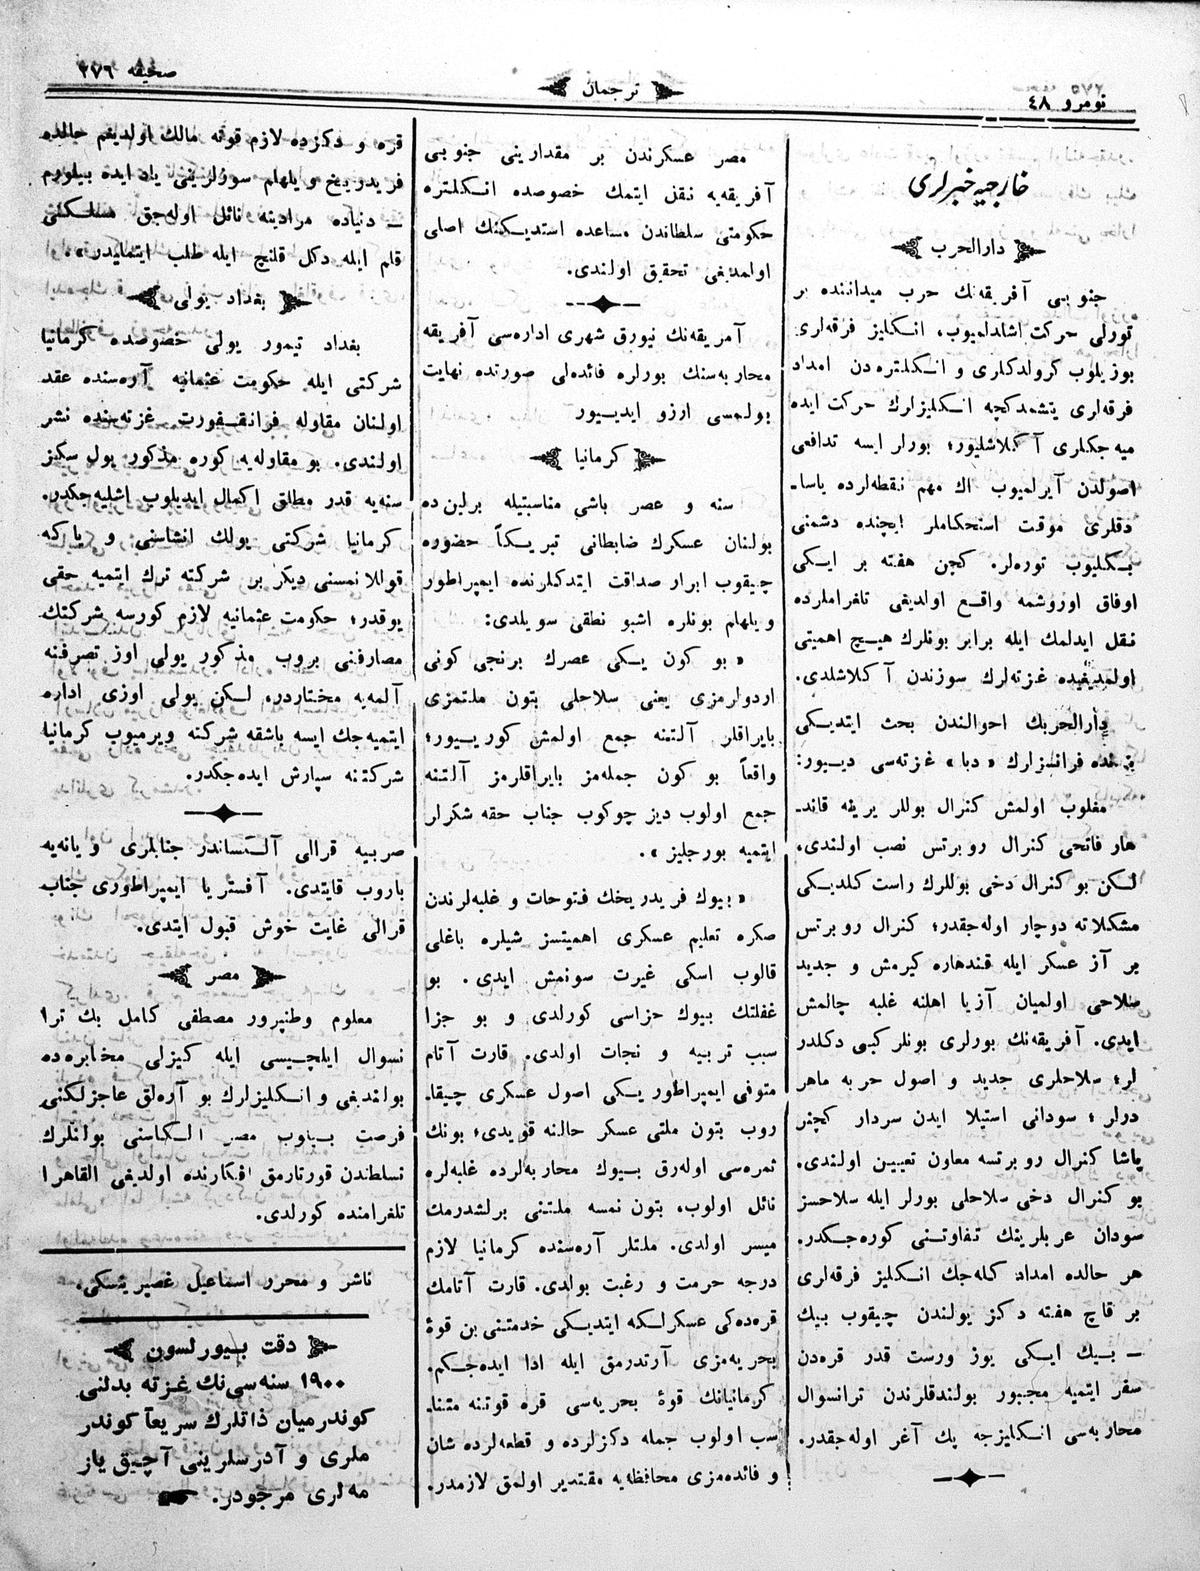 نومرو ٤٨
ترجمان
صحیفه ٢٧٦
خارجیه خبرلری
دارالحرب
جنوبی آفریقه‌نك حرب میداننده بر
تورلی حركت اشلدلمیوب، انكلیز فرقه‌لری
بوزیلوب كرولدكلری و انكلتره‌دن امداد
فرقه‌لری یتشمدكچه انكلیزلرك حركت ایده
میه‌جكلری آكلاشلیور؛ بورلر ایسه تدافعی
اصولدن آیرلمیوب اك مهم نقطه‌لرده یاسا-
دقلری موقت استحكاملر ایچنده دشمنی
بكلیوب توره‌لر. كچن هفته بر ایكی
اوفاق اوروشمه واقع اولدیغی تلغراملرده
نقل ایدلمك ایله برابر بونلرك هیچ اهمیتی
اولمدیغیده غزته‌لرك سوزندن آكلاشلدی.
دارالحربك احوالندن بحث ایتدیكی
بنده فرانسزلرك «دبا» غزته‌سی دییور:
مغلوب اولمش كنرال بوللر یرینه قاند-
هار فاتحی كنرال روبرتس نصب اولندی،
لكن بو كنرال دخی بوللرك راست كلدیكی
مشكلاته دوچار اوله‌جقدر؛ كنرال روبرتس
بر آز عسكر ایله قندهاره كیرمش و جدید
سلاحی اولمیان آزیا اهلنه غلبه چالمش
ایدی. آفریقه‌نك بورلری بونلر كبی دكلدر
لر؛ سلاحلری جدید و اصول حربه ماهر
درلر؛ سودانی استیلا ایدن سردار كچنر
پاشا كنرال روبرتسه معاون تعیین اولندی.
بو كنرال دخی سلاحلی بورلر ایله سلاحسز
سودان عربلرینك تفاوتنی كوره‌جكدر.
هر حالده امداد كله‌جك انكلیز فرقه‌لری
بر قاچ هفته دكز یولندن چیقوب بیك
— بیك ایكی یوز ورست قدر قره‌دن
سفر ایتمیه مجبور بولندقلرندن ترانسوال
محاربه‌سی انكلیزجه پك آغر اوله‌جقدر.
مصر عسكرندن بر مقدارینی جنوبی
آفریقه‌یه نقل ایتمك خصوصده انكلتره
حكومتی سلطاندن مساعده استدیكنك اصلی
اولمدیغی تحقیق اولندی.
آمریقه‌نك نیورق شهری اداره‌سی آفریقه
محاربه‌سنك بورلره فائده‌لی صورتده نهایت
بولمسی ارزو ایدییور
كرمانیا
سنه و عصر باشی مناسبتیله برلین‌ده
بولنان عسكرك ضابطانی تبریكاً حضوره
چیقوب ابراز صداقت ایتدكلرنده ایمپراطور
ویلهلم بونلره اشبو نطقی سویلدی:
«بو كون یكی عصرك برنجی كونی
اردولرمزی یعنی سلاحلی بتون ملتمزی
بایراقلر آلتنه جمع اولمش كورییور؛
واقعاً بو كون جمله‌مز بایراقلرمز آلتنه
جمع اولوب دیز چوكوب جناب حقه شكرلر
ایتمیه بورجلیز».
«بیوك فریدریخك فتوحات و غلبه‌لرندن
صكره تعلیم عسكری اهمیتسز شیلره باغلی
قالوب اسكی غیرت سونمش ایدی. بو
غفلتك بیوك جزاسی كورلدی و بو جزا
سبب تربیه و نجات اولدی. قارت آتام
متوفی ایمپراطور یكی اصول عسكری چیقا-
روب بتون ملتی عسكر حالنه قویدی؛ بونك
ثمره‌سی اوله‌رق بیوك محاربه‌لرده غلبه‌لره
نائل اولوب، بتون نمسه ملتنی برلشدرمك
میسر اولدی. ملتلر آره‌سنده كرمانیا لازم
درجه حرمت و رغبت بولدی. قارت آتامك
قره‌ده‌كی عسكرلكه ایتدیكی خدمتنی بن قوۀ
بحریه‌مزی آرتدرمق ایله ادا ایده‌جكم.
كرمانیانك قوۀ بحریه‌سی قره قوتنه متنا-
سب اولوب جمله دكزلرده و قطعه‌لرده شان
و فائده‌مزی محافظه‌یه مقتدیر اولمق لازمدر.
قره و دكزده لازم قوته مالك اولدیغم حالده
فریدریخ ویلهلم سوزلرینی یاد ایده بیلورم
— دنیاده مرادینه نائل اوله‌جق مسلكلی
قلم ایله دكل قلنچ ایله طلب ایتملیدر».
بغداد یولی
بغداد تیمور یولی خصوصده كرمانیا
شركتی ایله حكومت عثمانیه آره‌سنده عقد
اولنان مقاوله فرانقفورت غزته‌سنده نشر
اولندی. بو مقاوله‌یه كوره مذكور یول سكز
سنه‌یه قدر مطلق اكمال ایدیلوب اشلیه‌جكدر.
كرمانیا شركتی یولك انشاسنی و یاركه
قوللانمسنی دیكر بر شركته ترك ایتمیه حقی
یوقدر؛ حكومت عثمانیه لازم كورسه شركتك
مصارفنی بروب مذكور یولی اوز تصرفنه
آلمه‌یه مختاردر. لكن یولی اوزی اداره
ایتمیه‌جك ایسه باشقه شركته ویرمیوب كرمانیا
شركتنه سپارش ایده‌جكدر.
صربیه قرالی آلكساندر جنابلری ویانه‌یه
باروب قایتدی. آفستریا ایمپراطوری جناب
قرالی غایت خوش قبول ایتدی.
مصر
معلوم وطنپرور مصطفی كامل بك ترا
نسوال ایلچیسی ایله كیزلی مخابره‌ده
بولندیغی و انكلیزلرك بو آره‌لق عاجزلكنی
فرصت بیلوب مصر الكاسنی بونلرك
تسلطندن قورتارمق افكارنده اولدیغی القاهرا
تلغرامنده كورلدی.
ناشر و محرر اسماعیل غصپرینسكی.
دقت بیورلسون
١٩٠٠ سنه‌سی‌نك غزته بدلنی
كوندرمیان ذاتلرك سریعاً كوندر
ملری و آدرسلرینی آچیق یاز
مه‌لری مرجودر.